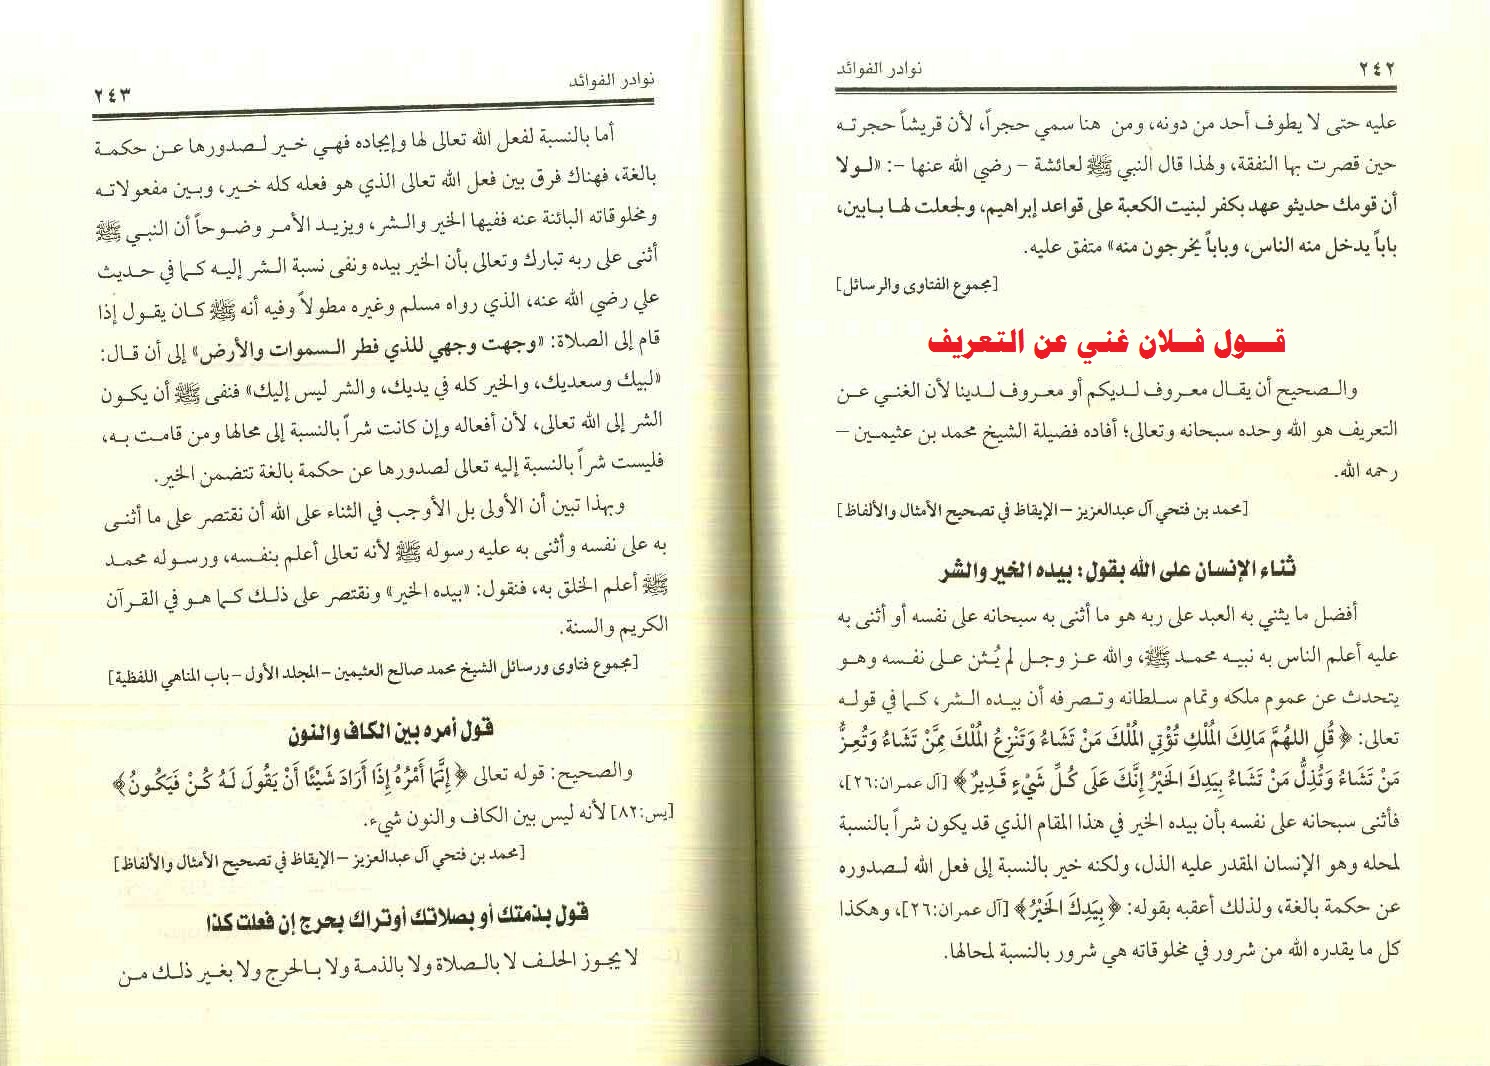 ٢٤٢ نوادر الفوائد
عليه حتى لا يطوف أحد من دونه، ومن هنا سمي حجراً، لأن قريشاً حجرته
حين قصرت بها النفقة، ولهذا قال النبي ﷺ لعائشة – رضي الله عنها –: «لـولا
أن قومك حديثو عهد بكفر لبنيت الكعبة على قواعد إبراهيم، ولجعلت لهـا بـابين،
باباً يدخل منه الناس، وباباً يخرجون منه» متفق عليه.
[مجموع الفتاوى والرسائل]
قـــول فـــلان غنــي عن التعريف
والـصحيح أن يقـال معـروف لـديكم أو معـروف لـدينا لأن الغنـي عـن
التعريف هو الله وحده سبحانه وتعالى؛ أفاده فضيلة الشيخ محمد بن عثيمـين –
رحمه الله.
[محمد بن فتحي آل عبدالعزيز – الإيقاظ في تصحيح الأمثال والألفاظ]
ثناء الإنسان على الله بقول: بيده الخير والشر
أفضل ما يثني به العبد على ربه هو ما أثنى به سبحانه على نفسه أو أثنى به
عليه أعلم الناس به نبيـه محمـد ﷺ، والله عـز وجـل لم يُـثن عـلى نفـسه وهـو
يتحدث عن عموم ملكه وتمام سلطانه وتـصرفه أن بيـده الـشر، كـما في قولـه
تعالى: ﴿ قُلِ اللهُمَّ مَالِكَ الْمُلْكِ تُؤْتِي الْمُلْكَ مَنْ تَشَاءُ وَتَنْزِعُ الْمُلْكَ مِمَّنْ تَشَاءُ وَتُعِزُّ
مَنْ تَشَاءُ وَتُذِلُّ مَنْ تَشَاءُ بِيَدِكَ الْخَيْرُ إِنَّكَ عَلَى كُلِّ شَيْءٍ قَدِيرٌ﴾ [آل عمران:٢٦]،
فأثنى سبحانه على نفسه بأن بيده الخير في هذا المقام الذي قد يكون شراً بالنسبة
لمحله وهو الإنسان المقدر عليه الذل، ولكنه خير بالنسبة إلى فعل الله لـصدوره
عن حكمة بالغة، ولذلك أعقبه بقوله: ﴿ بِيَدِكَ الْخَيْرُ﴾ [آل عمران:٢٦]، وهكذا
كل ما يقدره الله من شرور في مخلوقاته هي شرور بالنسبة لمحالها.
نوادر الفوائد ٢٤٣
أما بالنسبة لفعل الله تعالى لها وإيجاده فهـي خـير لـصدورها عـن حكمـة
بالغة، فهناك فرق بين فعل الله تعالى الذي هو فعله كله خـير، وبـين مفعولاتـه
ومخلوقاته البائنة عنه ففيها الخير والشر، ويزيـد الأمـر وضـوحاً أن النبـي ﷺ
أثنى على ربه تبارك وتعالى بأن الخير بيده ونفى نسبة الـشر إليـه كـما في حـديث
علي رضي الله عنه، الذي رواه مسلم وغيره مطولاً وفيه أنه ﷺ كـان يقـول إذا
قام إلى الصلاة: «وجهت وجهي للذي فطر الـسموات والأرض» إلى أن قـال:
«لبيك وسعديك، والخير كله في يديك، والشر ليس إليك» فنفى ﷺ أن يكـون
الشر إلى الله تعالى، لأن أفعاله وإن كانت شراً بالنسبة إلى محالها ومن قامـت بـه،
فليست شراً بالنسبة إليه تعالى لصدورها عن حكمة بالغة تتضمن الخير.
وبهذا تبين أن الأولى بل الأوجب في الثناء على الله أن نقتصر على ما أثنـى
به على نفسه وأثنى به عليه رسوله ﷺ لأنه تعالى أعلم بنفسه، ورسـوله محمـد
ﷺ أعلم الخلق به، فنقول: «بيده الخير» ونقتصر على ذلـك كـما هـو في القـرآن
الكريم والسنة.
[مجموع فتاوى ورسائل الشيخ محمد صالح العثيمين – المجلد الأول – باب المناهي اللفظية]
قول أمره بين الكاف والنون
والصحيح: قوله تعالى ﴿ إِنَّمَا أَمْرُهُ إِذَا أَرَادَ شَيْئًا أَنْ يَقُولَ لَهُ كُنْ فَيَكُونُ﴾
[يس:٨٢] لأنه ليس بين الكاف والنون شيء.
[محمد بن فتحي آل عبدالعزيز – الإيقاظ في تصحيح الأمثال والألفاظ]
قول بذمتك أو بصلاتك أو تراك بحرج إن فعلت كذا
لا يجـوز الحلـف لا بالـصلاة ولا بالذمـة ولا بـالحرج ولا بغـير ذلـك مـن